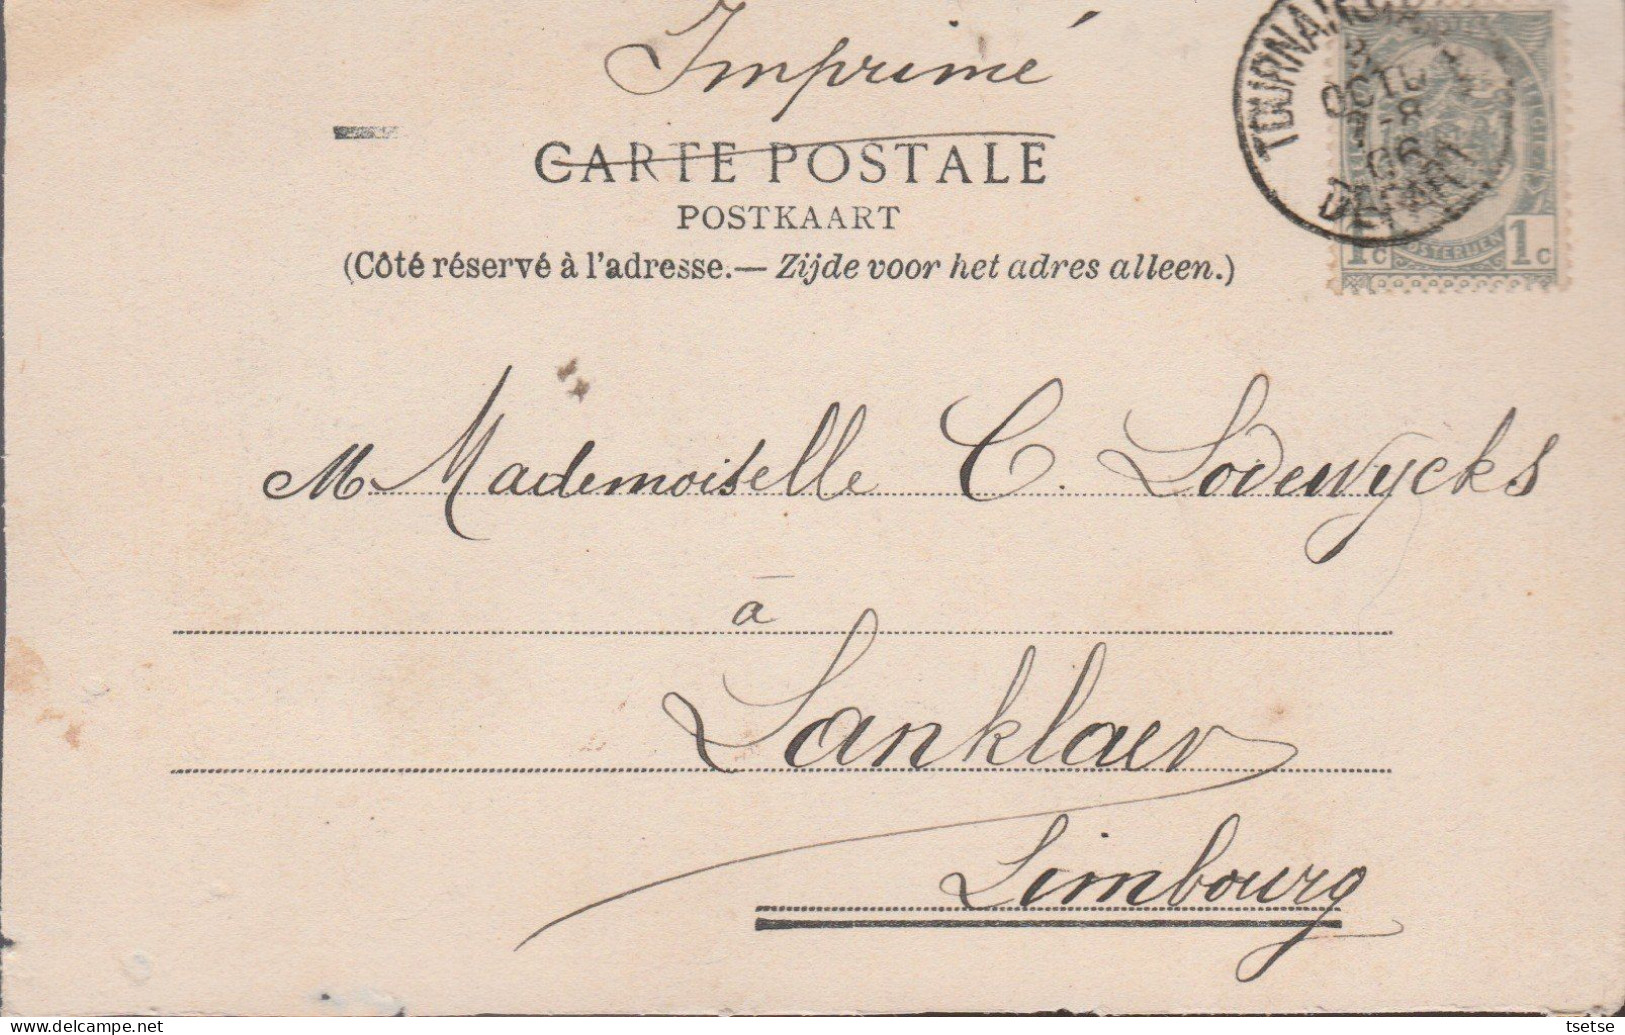 Imprimé
CARTE POSTALE
POSTKAART
(Côté réservé à l'adresse.— Zijde voor het adres alleen.)
TOURNAI
OCTO
7-8
06
DEPART
1c POSTERIJEN 1c
M. Mademoiselle C. Lodewyckx
à
Lanklaer
Limbourg
tsetse